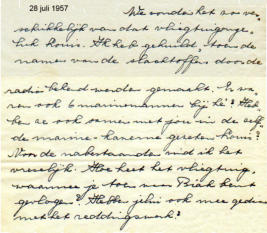 28 juli 1957
We vonden het zo ver-
schrikkelijk van dat vliegtuigonge-
luk Louis. Ik heb gehuild, toen de
namen van de slachtoffers door de
radio bekend werden gemaakt. Er wa-
ren ook 6 marinemannen bij hè? Heb-
ben ze ook samen met jou in de zelf-
de marine-kazerne gezeten Louis?
Voor de nabestaanden vind ik het
vreselijk. Hoe heet het vliegtuig,
waarmee je toen naar Biak bent
gevlogen? Hebben jullie ook mee gedaan
met het reddingswerk?